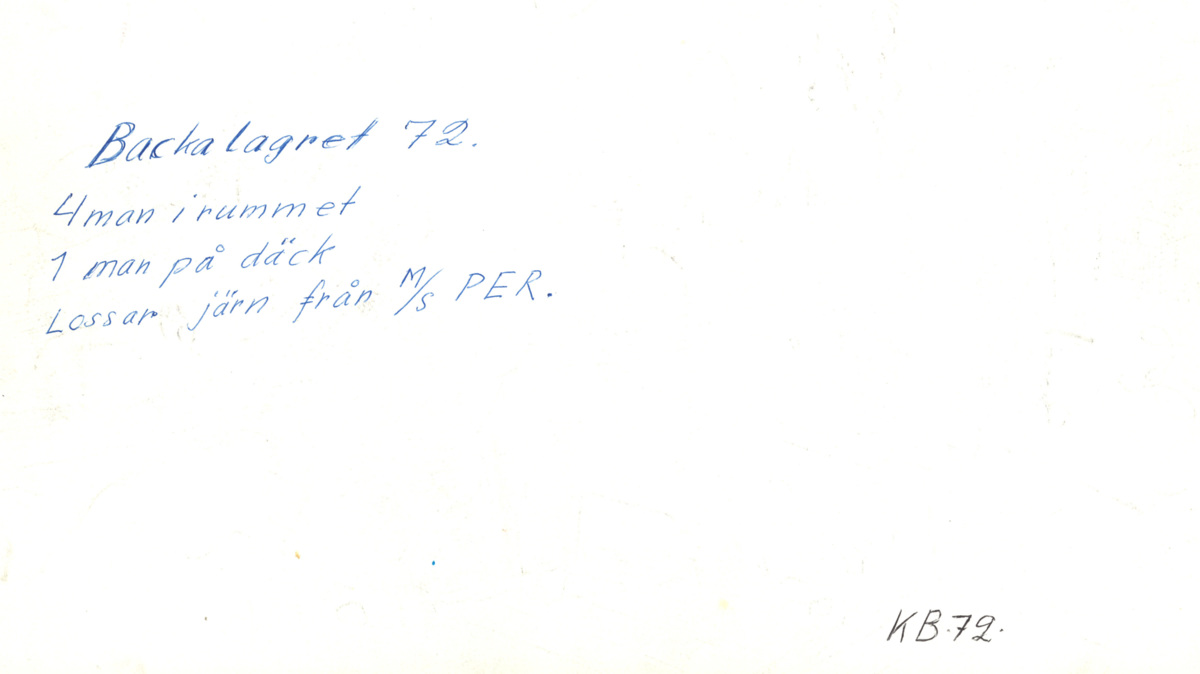 Backalagret 72.
4 man i rummet
1 man på däck
Lossar järn från M/S PER.
KB.72.